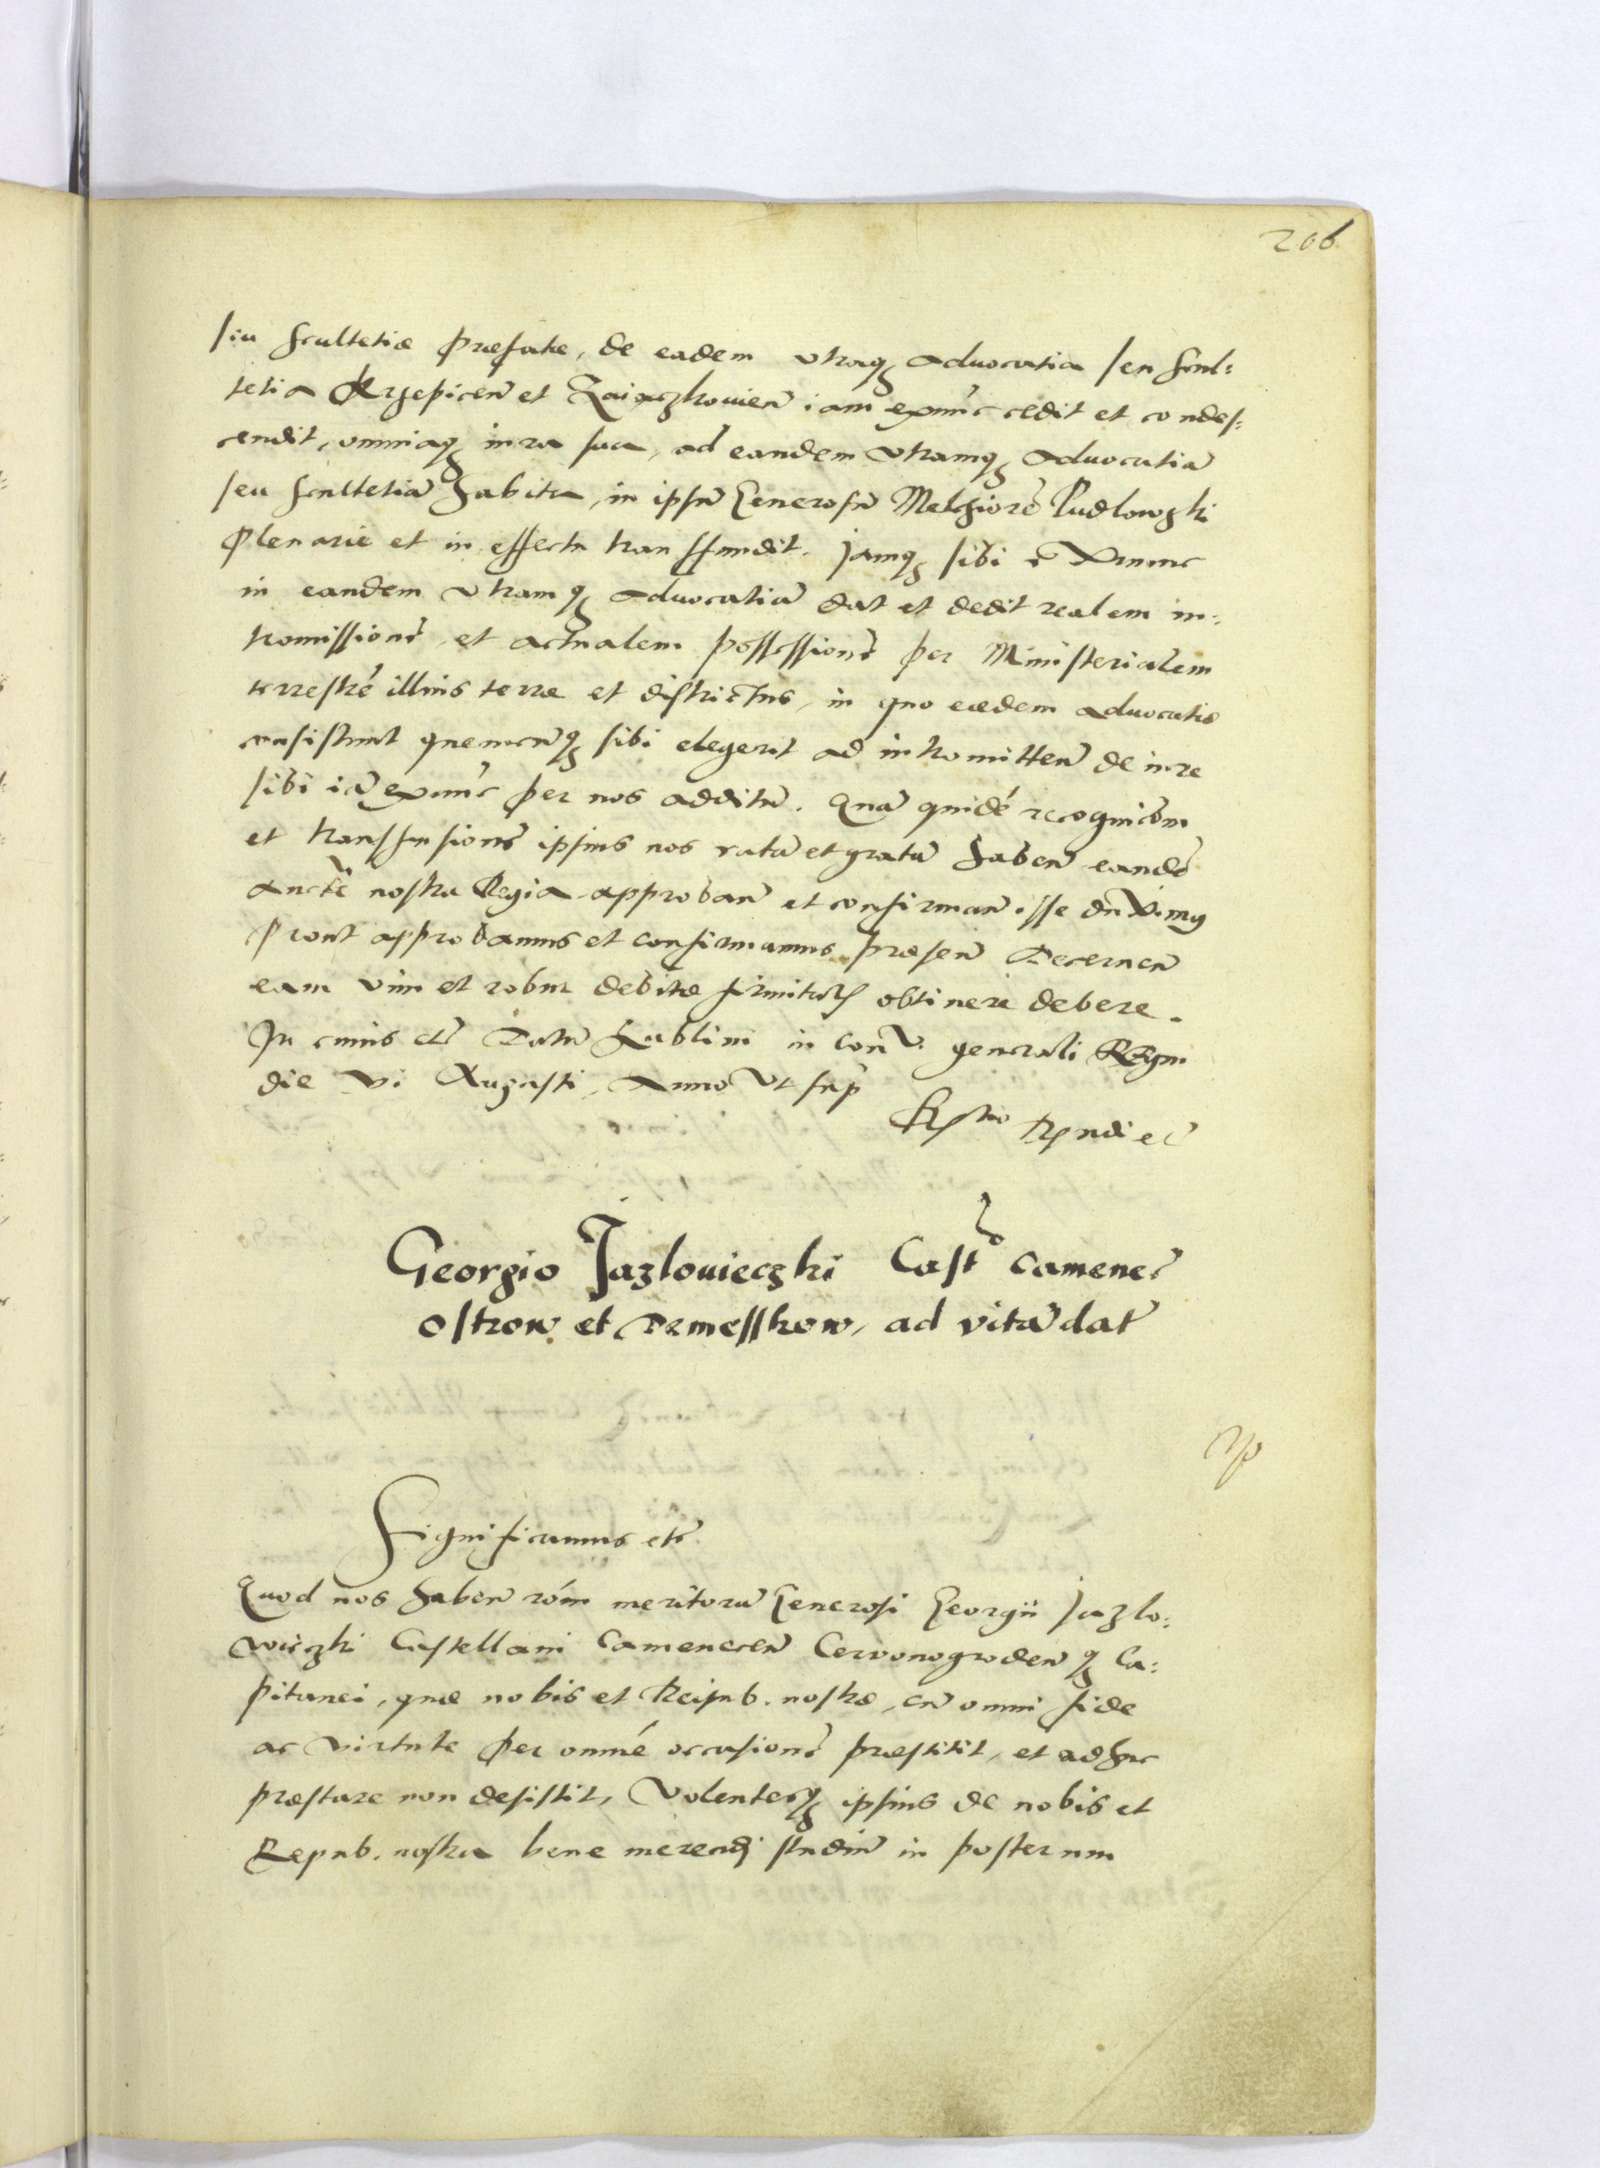 206
seu scultetiæ præfatæ, de eadem utraq advocatia seu scul:
tetia Krzepicen̄ et Zaiączkowien̄ iam exnūc cedit et condes:
cendit, omniaq iura sua, ad eandem utramq advocatiā
seu scultetiā habita, in ipsū Generosū Melchiorē Pudlowski
Plenarie et in effectu transffundit. Jamq sibi exnunc
in eandem utramq advocatiā dat et dedit realem in:
tromissionē, et actualem possessionē per Ministerialem
terrestrē illius terræ et districtus, in quo eædem advocatiæ
consistunt quemcunq sibi elegerit ad intromitten̄ de iure
sibi iā exnūc per nos additū. Quā quidē recognicōm
et transfusionē ipsius nos ratā et gratā haben̄ eandē
Auctē nostra Regia approban̄ et confirman̄ esse duximq
Prout approbamus et confirmamus præsen̄ Decernen̄
eam vim et robur debitæ firmitatis obtinere debere.
In cuius etc̄ Datū Lublini in Conv. generali Regni
die VI Augusti, Anno ut sup̄
Georgio Jazlowieczki Castō Camenec̄
Ostrow et Demesskow, ad vitā dat̄
Significamus etc̄
Quod nos haben̄ rōm meritorū Generosi Georgii Jazlo:
wieczki Castellani Camenecen̄ Cervonogroden̄q Ca:
pitanei, quæ nobis et Reipub. nostræ, cū omni fide
ac virtute per omnē occasionē præstitit, et adhuc
præstare non desistit, Volentesq ipsius de nobis et
Repub. nostra bene merendi studiū in posterum